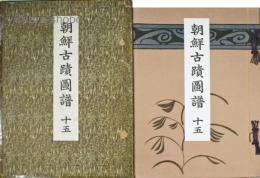 朝鮮古蹟圖譜
十五
朝鮮古蹟圖譜
十五